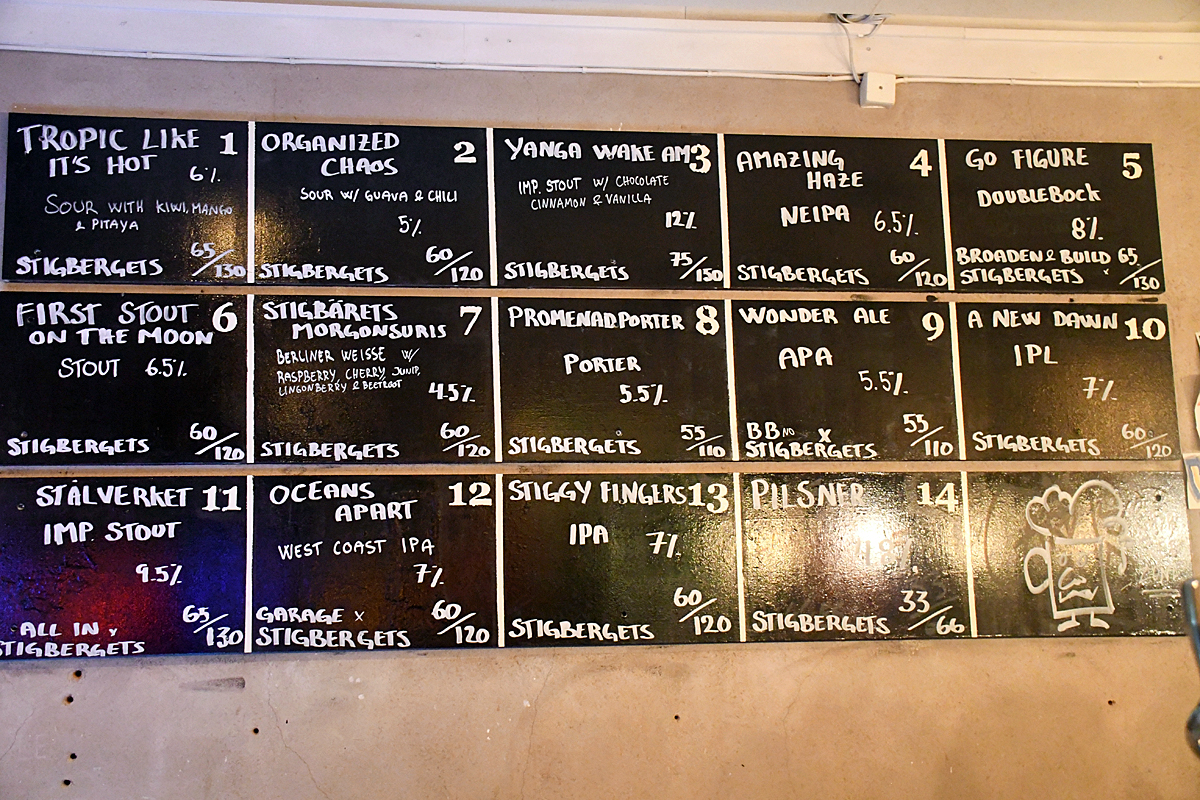 TROPIC LIKE 1
IT'S HOT 6%
SOUR WITH KIWI, MANGO
& PITAYA
STIGBERGETS 65/130
ORGANIZED 2
CHAOS
SOUR W/ GUAVA & CHILI
5%
STIGBERGETS 60/120
YANGA WAKE AM 3
IMP. STOUT W/ CHOCOLATE
CINNAMON & VANILLA
12%
STIGBERGETS 75/150
AMAZING 4
HAZE
NEIPA 6.5%
STIGBERGETS 60/120
GO FIGURE 5
DOUBLEBOCK
8%
BROADEN & BUILD 65/130
STIGBERGETS X
FIRST STOUT 6
ON THE MOON
STOUT 6.5%
STIGBERGETS 60/120
STIGBÄRETS 7
MORGONSURIS
BERLINER WEISSE W/
RASPBERRY, CHERRY, JUNIP,
LINGONBERRY & BEETROOT
4.5%
STIGBERGETS 60/120
PROMENADPORTER 8
PORTER
5.5%
STIGBERGETS 55/110
WONDER ALE 9
APA
5.5%
BBNO X 55/110
STIGBERGETS
A NEW DAWN 10
IPL
7%
STIGBERGETS 60/120
STÅLVERKET 11
IMP. STOUT
9.5%
ALL IN X 65/130
STIGBERGETS
OCEANS 12
APART
WEST COAST IPA
7%
GARAGE X 60/120
STIGBERGETS
STIGGY FINGERS 13
IPA 7%
STIGBERGETS 60/120
PILSNER 14
STIGBERGETS 33/66